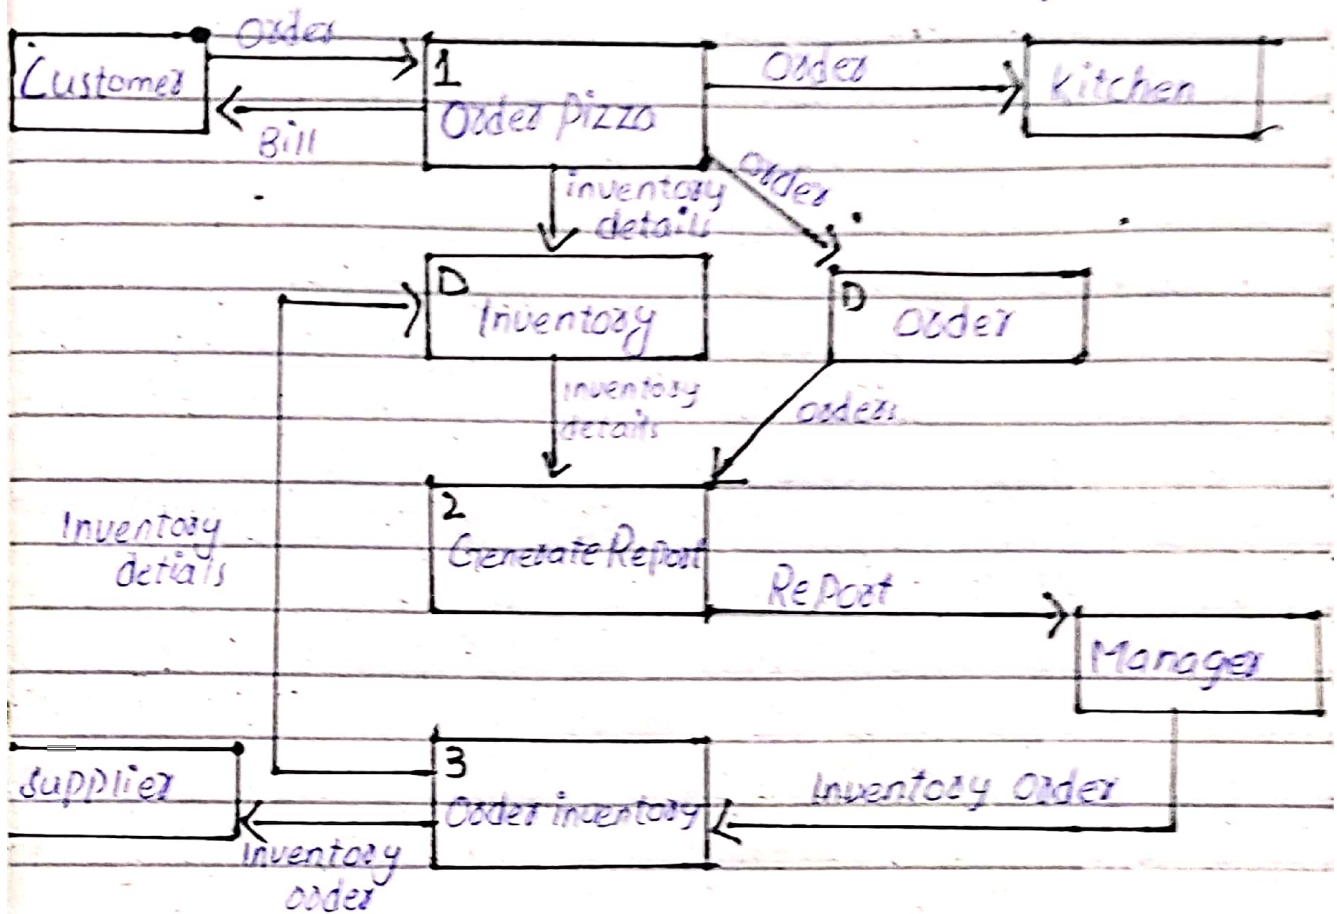 Order
Customer
1
Order Pizza
Order
Kitchen
Bill
inventory
details
Order
D
Inventory
D
Order
Inventory
details
orders
2
Generate Report
Inventory
detials
Report
Manager
Supplier
3
Order inventory
Inventory Order
Inventory
order